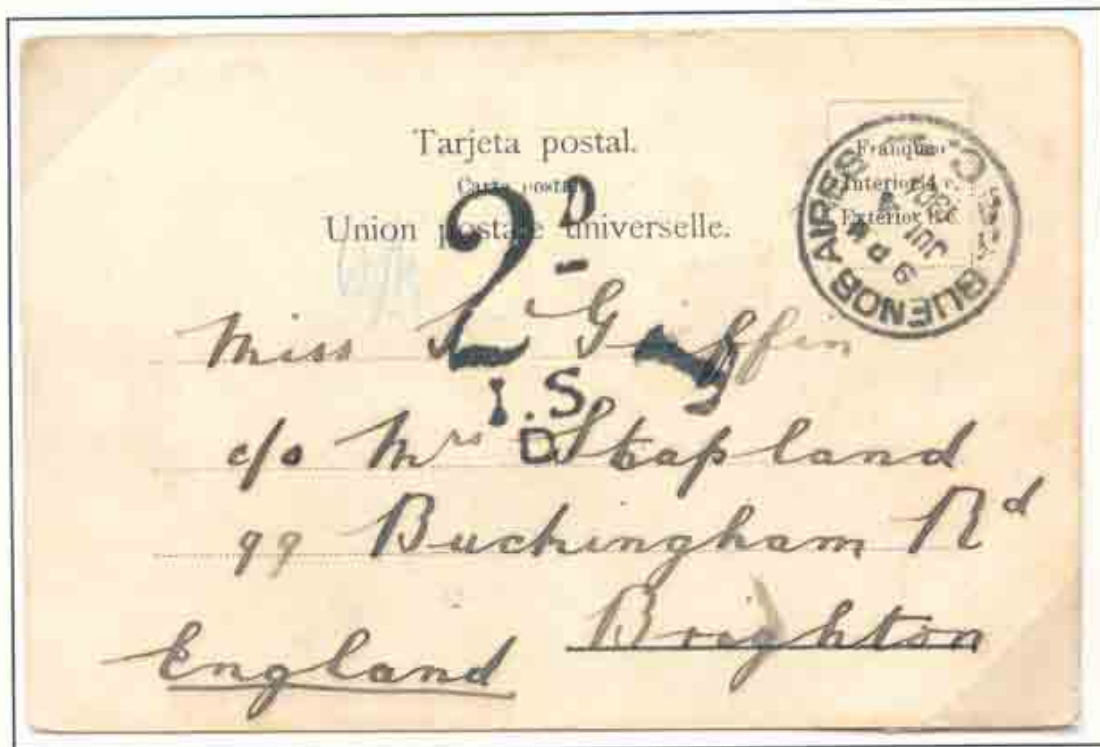 Tarjeta postal.
Carte postale
Union postale universelle.
Franqueo
Interior 4 c.
Exterior
BUENOS AIRES
JUL
1901
9 PM
2D
I.S.
D
Miss Griffin
c/o Mrs Stapland
99 Buckingham Rd
Brighton
England